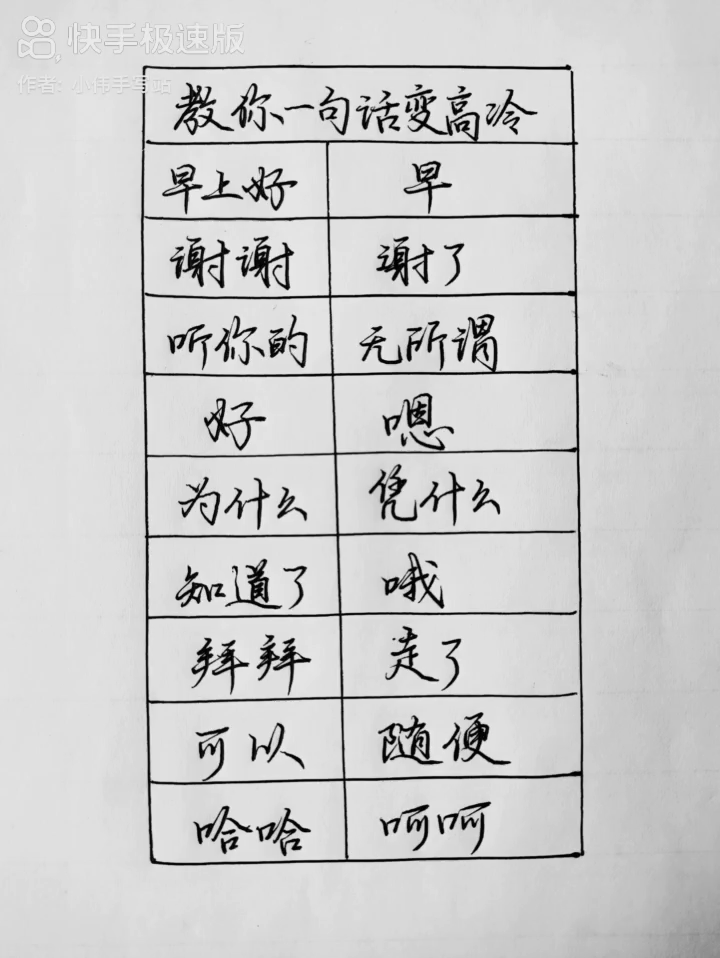 快手极速版
作者：小伟手写站
教你一句话变高冷
早上好 早
谢谢 谢了
听你的 无所谓
好 嗯
为什么 凭什么
知道了 哦
拜拜 走了
可以 随便
哈哈 呵呵